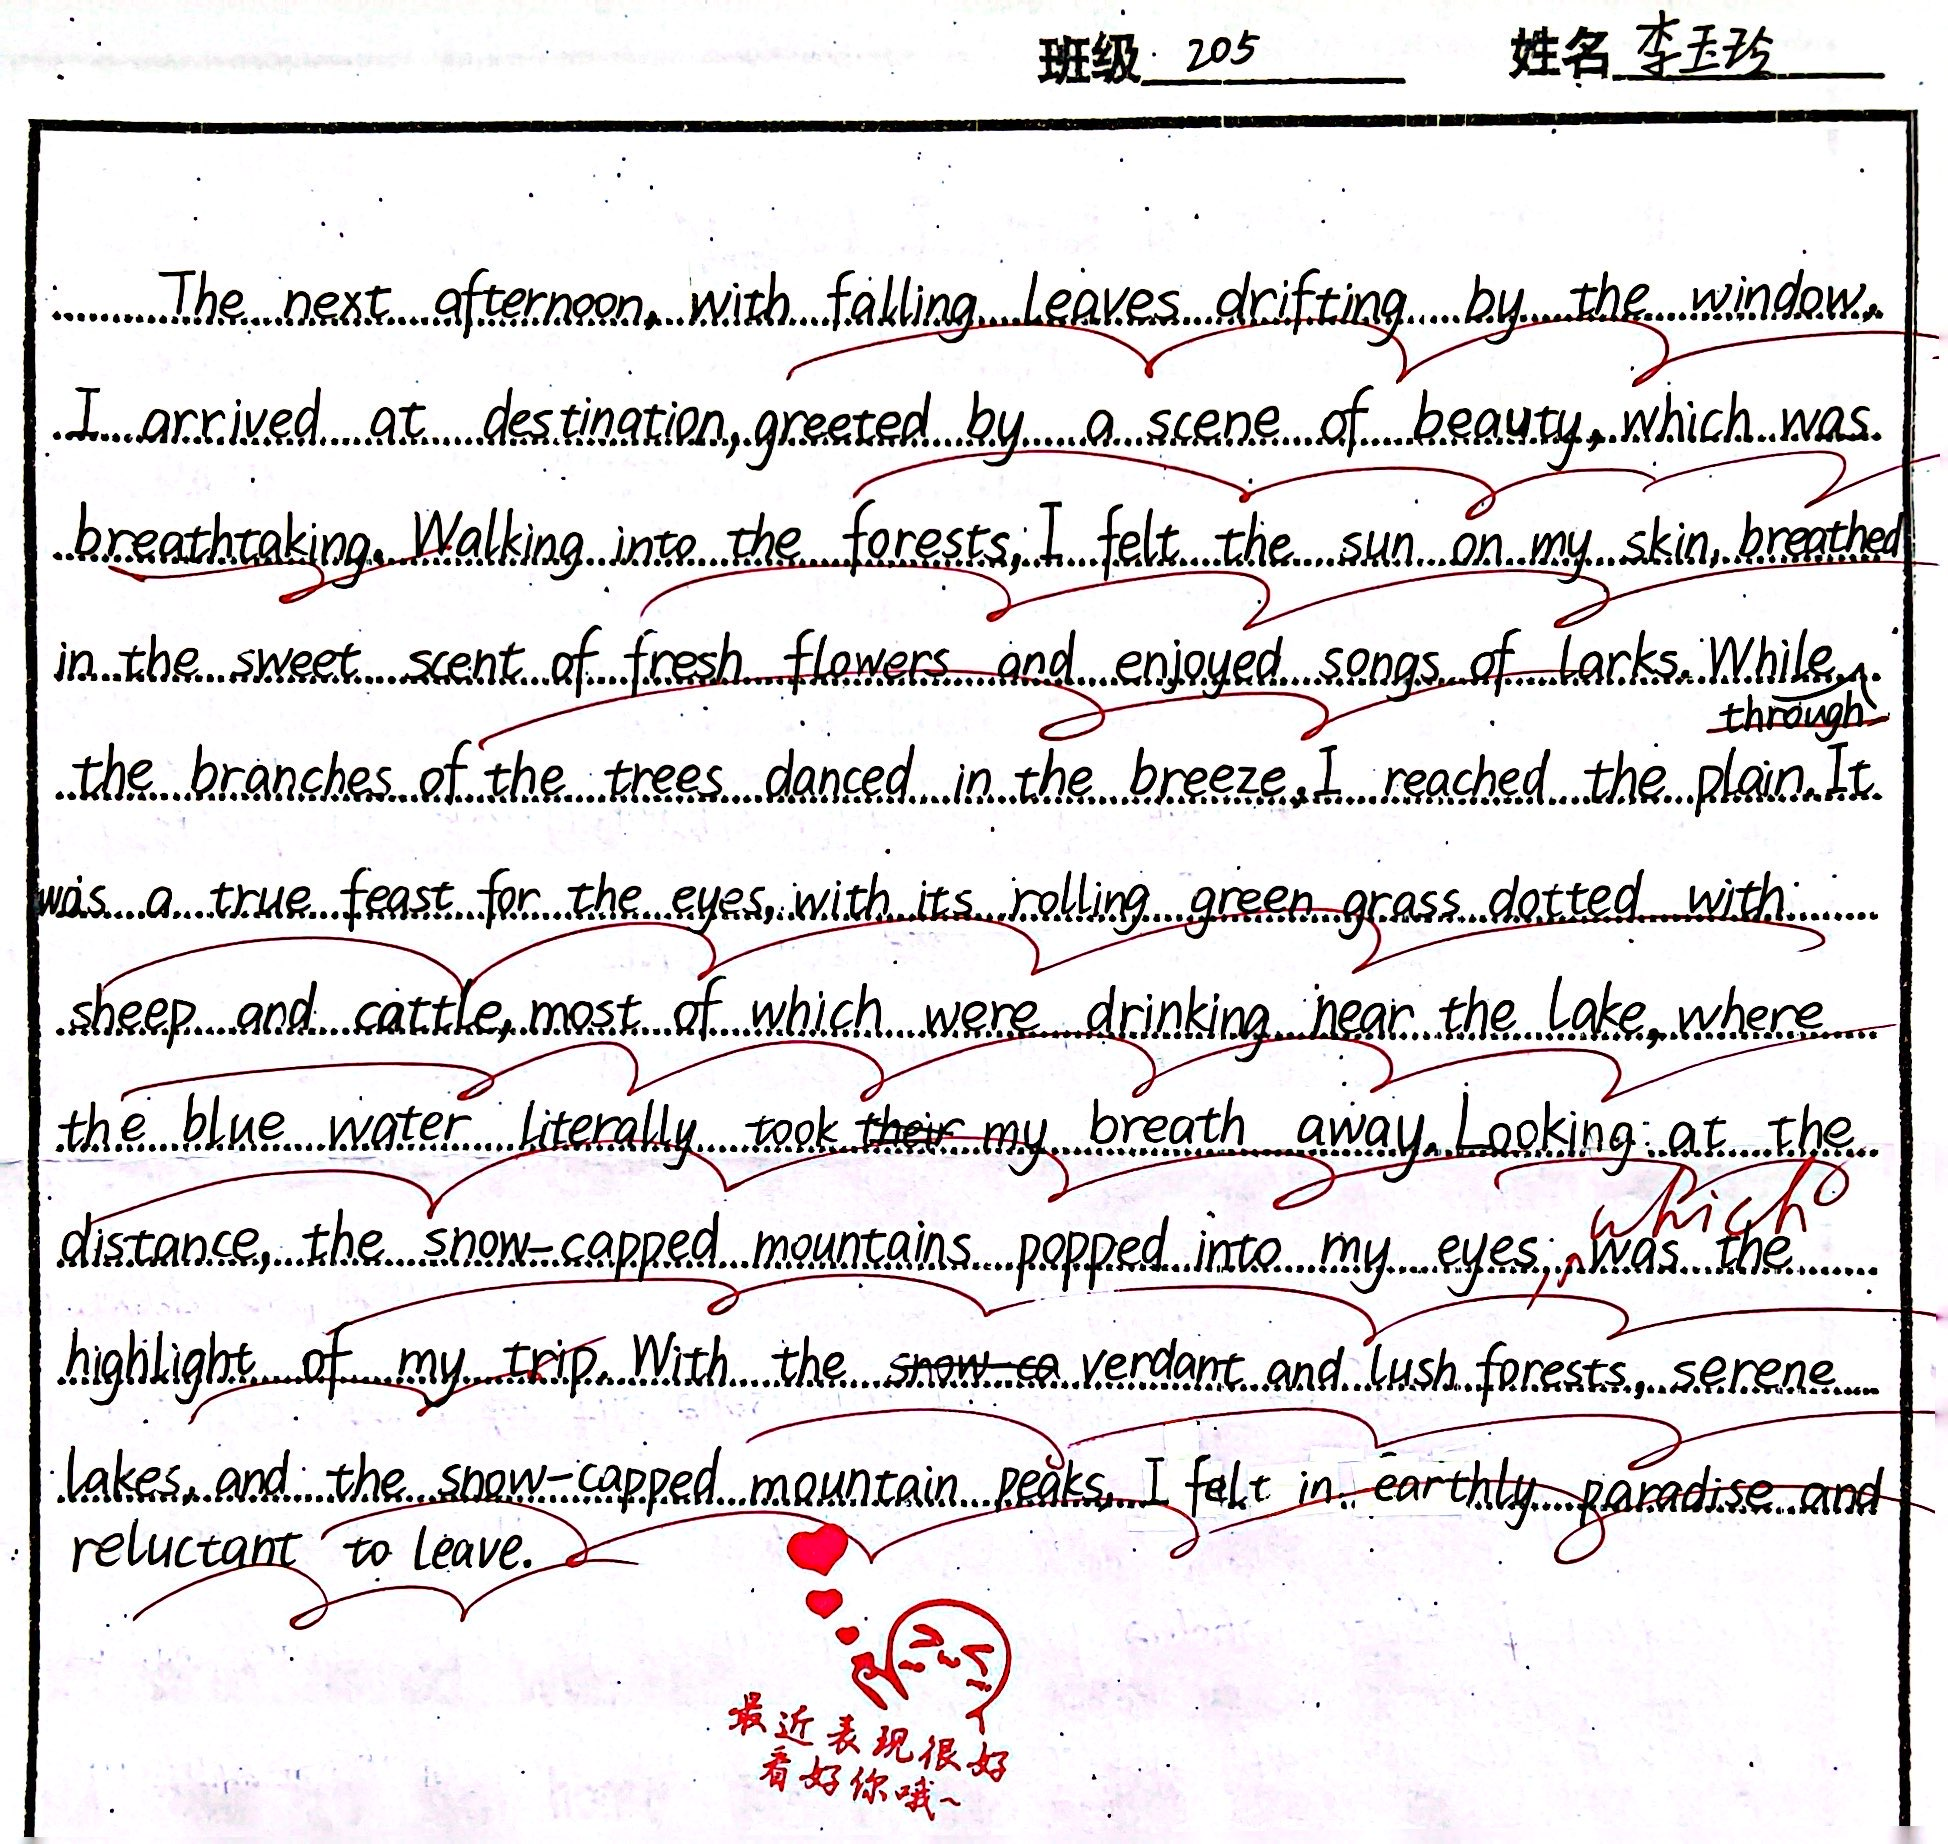 班级 205 姓名 李玉玲
The next afternoon, with falling leaves drifting by the window,
I arrived at destination, greeted by a scene of beauty, which was
breathtaking. Walking into the forests, I felt the sun on my skin, breathed
in the sweet scent of fresh flowers and enjoyed songs of larks. While
through
the branches of the trees danced in the breeze, I reached the plain. It
was a true feast for the eyes, with its rolling green grass dotted with
sheep and cattle, most of which were drinking near the lake, where
the blue water literally took their my breath away. Looking at the
which
distance, the snow-capped mountains popped into my eyes, was the
highlight of my trip. With the snow-ca verdant and lush forests, serene
lakes, and the snow-capped mountain peaks, I felt in earthly paradise and
reluctant to leave.
最近表现很好
看好你哦~